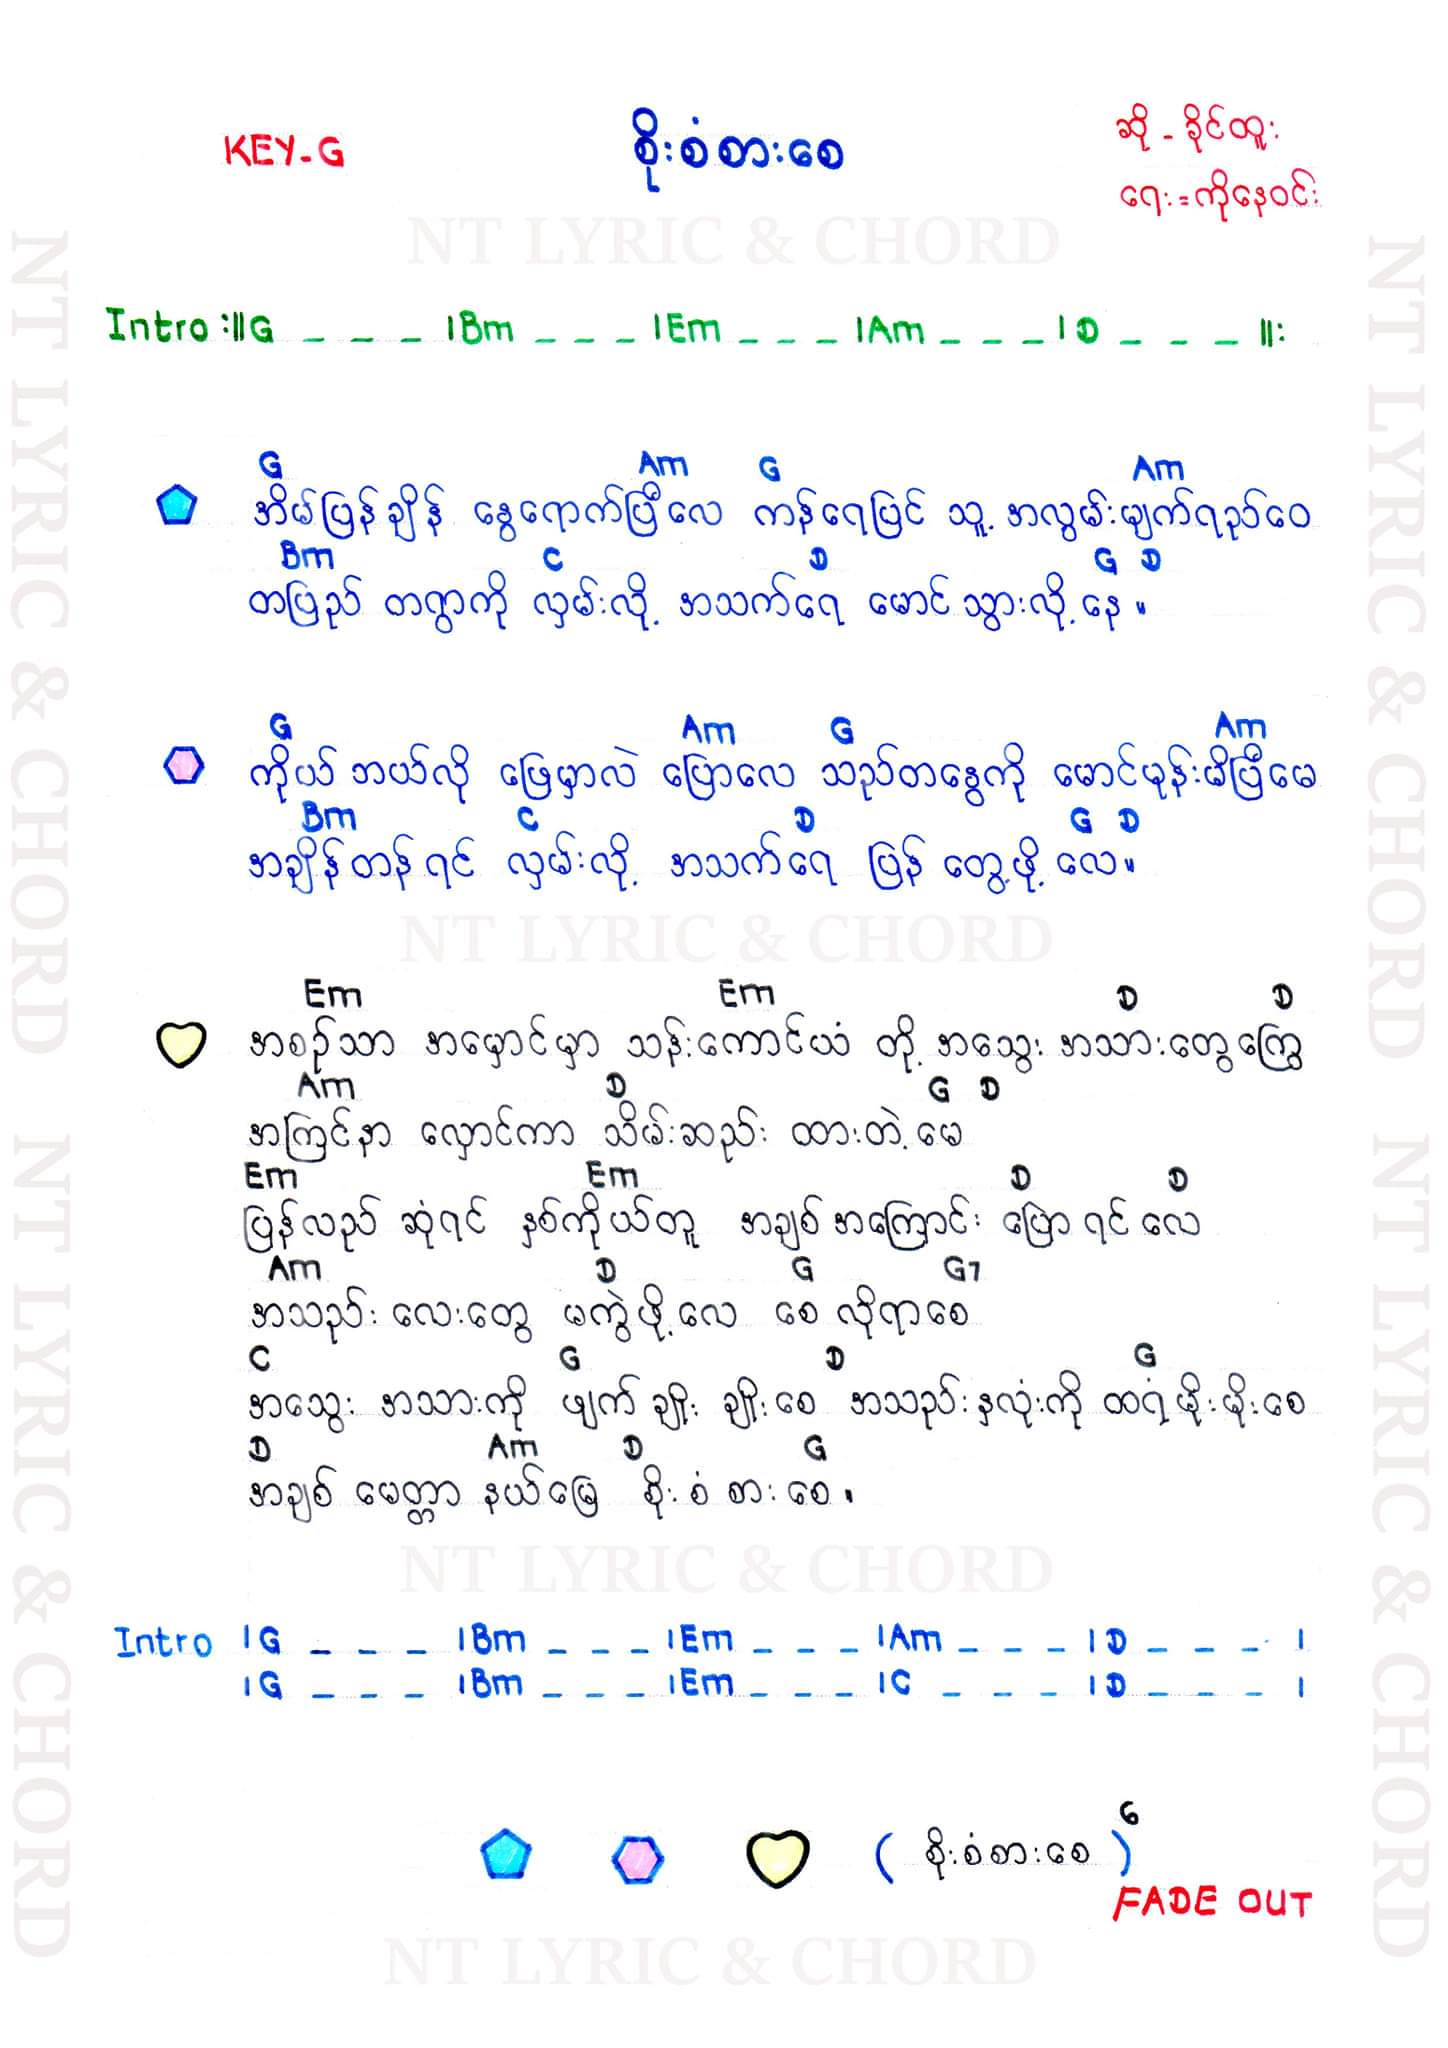 KEY-G
စိုးစံစားစေ
ဆို - ခိုင်ထူး
ရေး = ကိုနေဝင်း
NT LYRIC & CHORD
Intro :|| G _ _ _ | Bm _ _ _ | Em _ _ _ | Am _ _ _ | D _ _ _ ||:
G Am G Am
အိမ်ပြန်ချိန် နွေရောက်ပြီလေ ကန်ရေပြင် သူ့ အလွမ်းမျက်ရည်ဝေ
Bm C D G D
တပြည် တရွာကို လှမ်းလို့ အသက်ရေ မောင်သွားလို့နေ ။
G Am G Am
ကိုယ် ဘယ်လို ဖြေမှာလဲ ပြောလေ သည်တနွေကို မောင်မုန်းမိပြီမေ
Bm C D G D
အချိန်တန်ရင် လှမ်းလို့ အသက်ရေ ပြန် တွေ့ဖို့ လေ ။
NT LYRIC & CHORD
Em Em D D
အစဉ်သာ အမှောင်မှာ သန်းကောင်ယံ တို့ အသွေး အသားတွေကြွေ
Am D G D
အကြင်နာ လှောင်ကာ သိမ်းဆည်း ထားတဲ့ မေ
Em Em D D
ပြန်လည် ဆုံရင် နှစ်ကိုယ်တူ အချစ် အကြောင်း ပြောရင် လေ
Am D G G7
အသည်း လေးတွေ မကွဲဖို့လေ စေ လိုရာစေ
C G D G
အသွေး အသားကို ဖျက် ချိုး ချိုးစေ အသည်းနှလုံးကို ထာရံ မိုးမိုးစေ
D Am D G
အချစ် မေတ္တာ နယ်မြေ စိုး စံ စား စေ ။
NT LYRIC & CHORD
Intro | G _ _ _ | Bm _ _ _ | Em _ _ _ | Am _ _ _ | D _ _ _ |
| G _ _ _ | Bm _ _ _ | Em _ _ _ | C _ _ _ | D _ _ _ |
( စိုးစံစားစေ ) 6
FADE OUT
NT LYRIC & CHORD
NT LYRIC & CHORD NT LYRIC & CHORD
NT LYRIC & CHORD NT LYRIC & CHORD